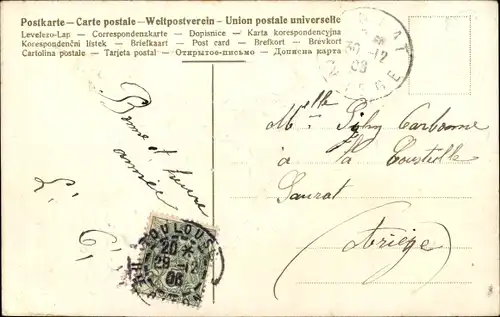 Postkarte – Carte postale – Weltpostverein – Union postale universelle
Levelező-Lap – Correspondenzkarte – Dopisnice – Karta korespondencyjna
Korespondenční lístek – Briefkaart – Post card – Brefkort – Brevkort
Cartolina postale – Tarjeta postal – Открытое-письмо – Дописна карта
30 -12
06
Bonne et heureuse
année
Mlle Carbonne
à la
Saurat
Ariège
TOULOUSE
20
29 -12
06